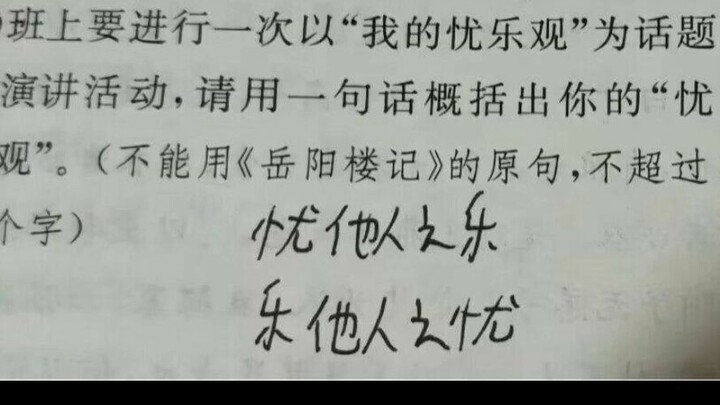 )班上要进行一次以“我的忧乐观”为话题
演讲活动,请用一句话概括出你的“忧
观”。(不能用《岳阳楼记》的原句,不超过
个字)
忧他人之乐
乐他人之忧